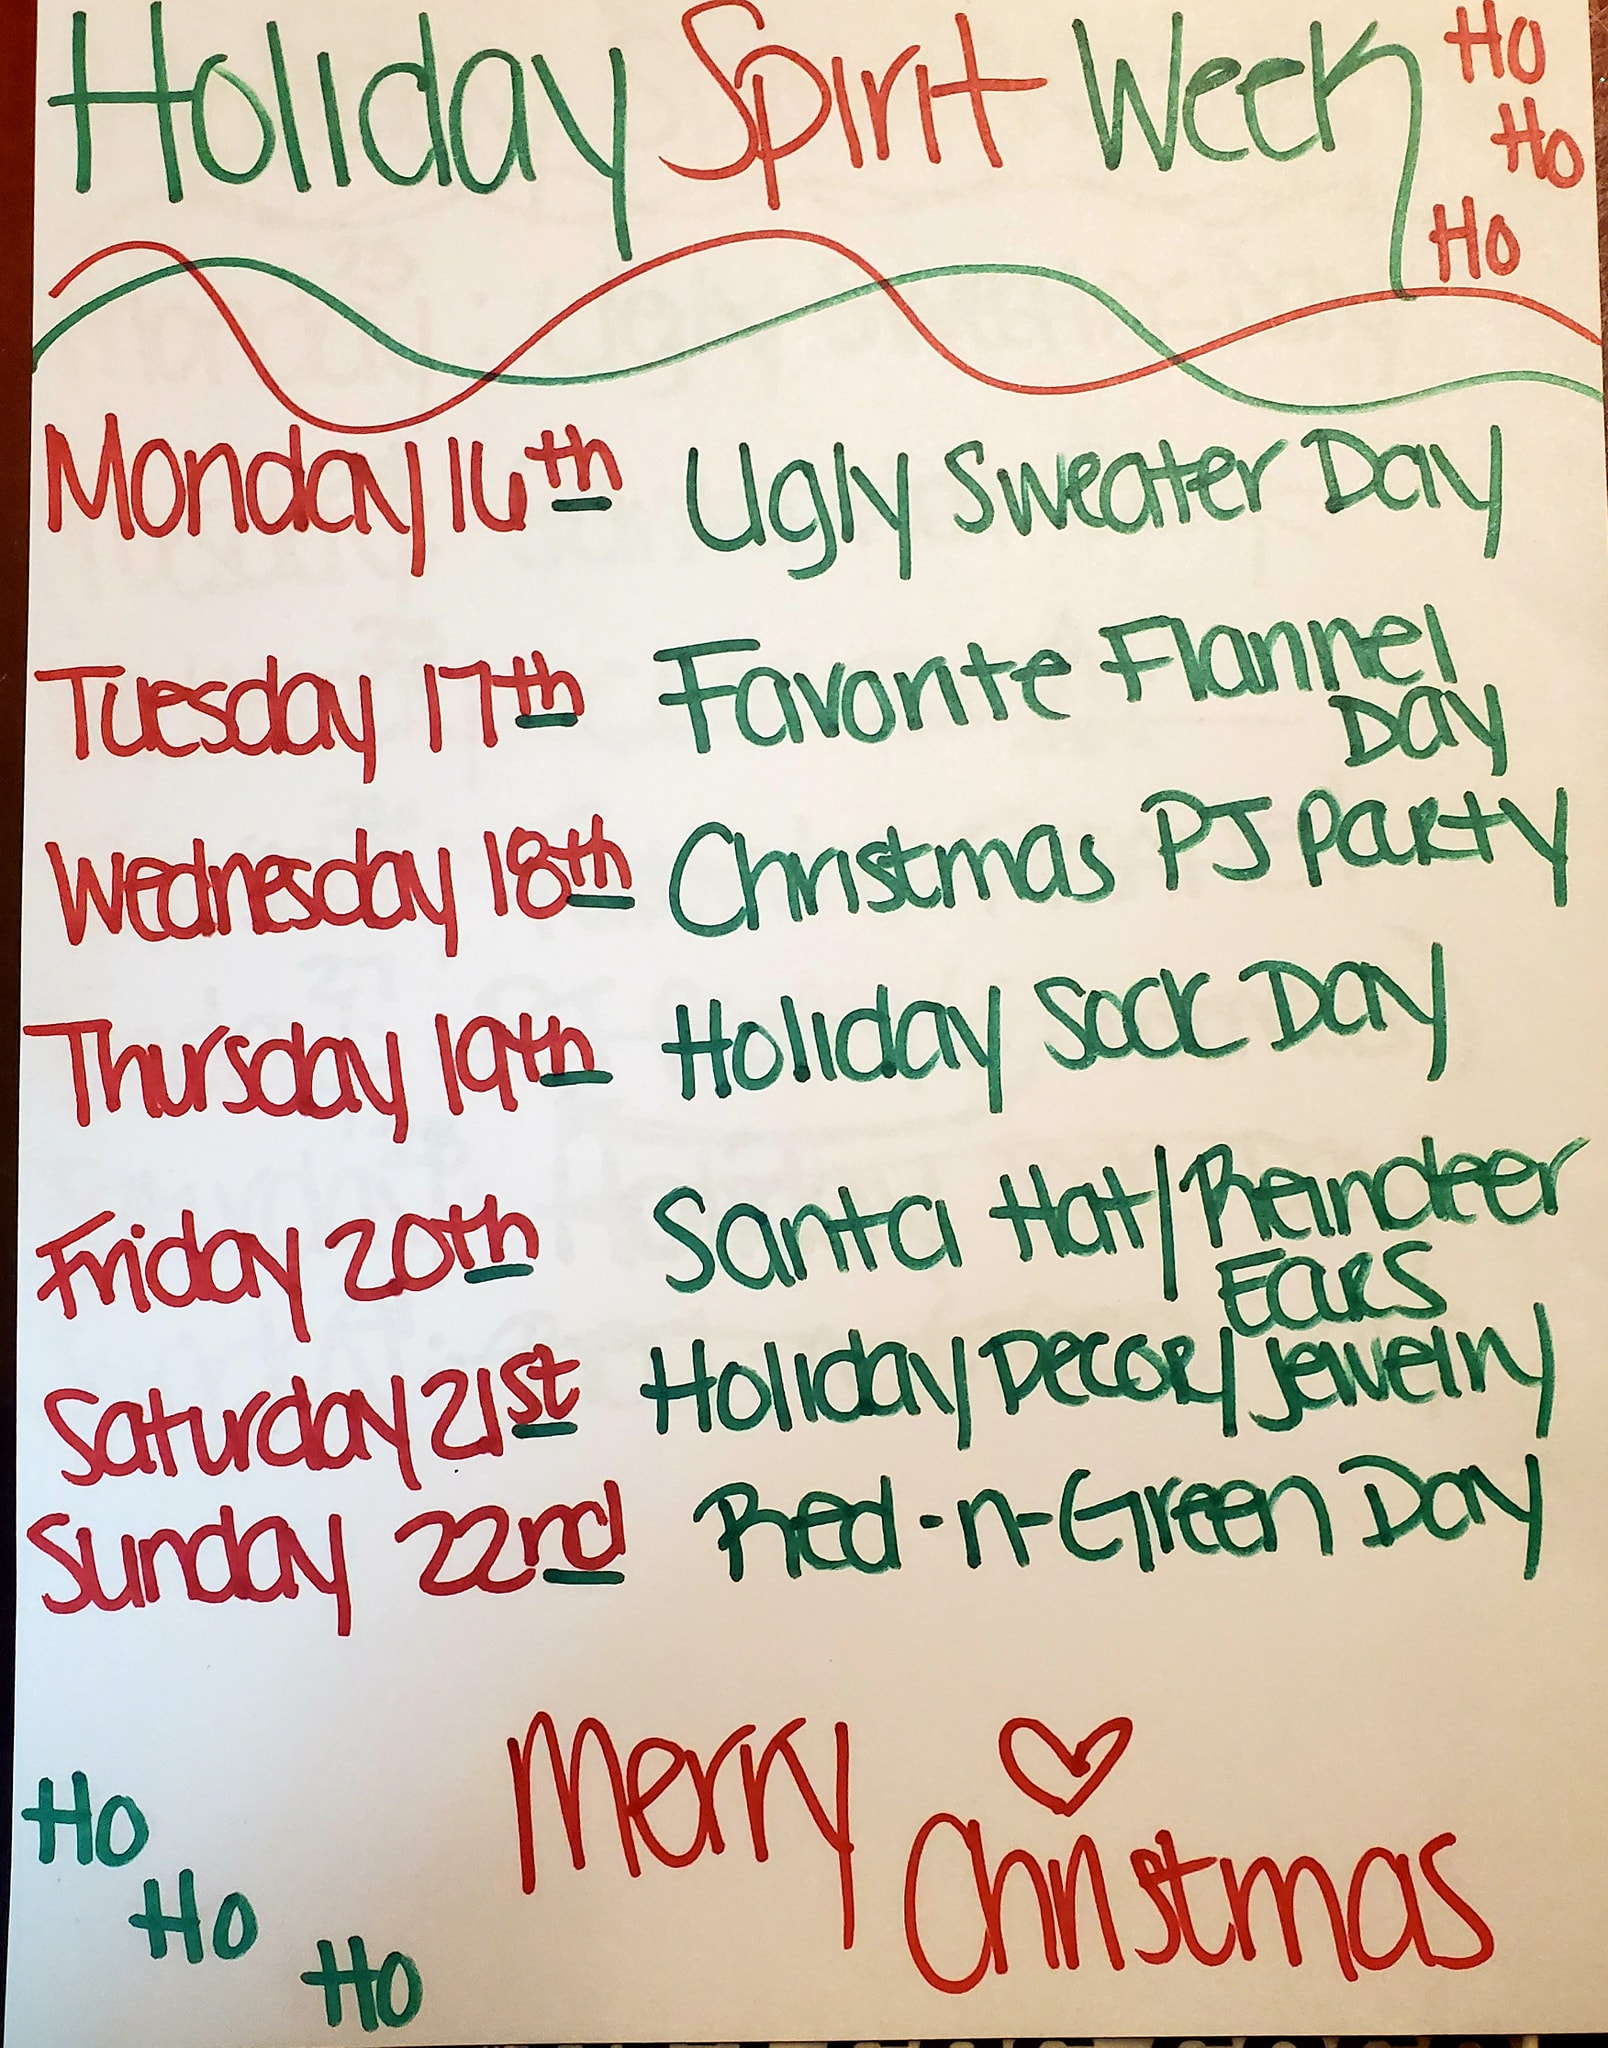 Holiday Spirit Week
Ho
Ho
Ho
Monday 16th Ugly Sweater Day
Tuesday 17th Favorite Flannel
Day
Wednesday 18th Christmas PJ Party
Thursday 19th Holiday Sock Day
Friday 20th Santa Hat/Reindeer
Ears
Saturday 21st Holiday Decor/Jewelry
Sunday 22nd Red-n-Green Day
Merry
Christmas
Ho
Ho
Ho